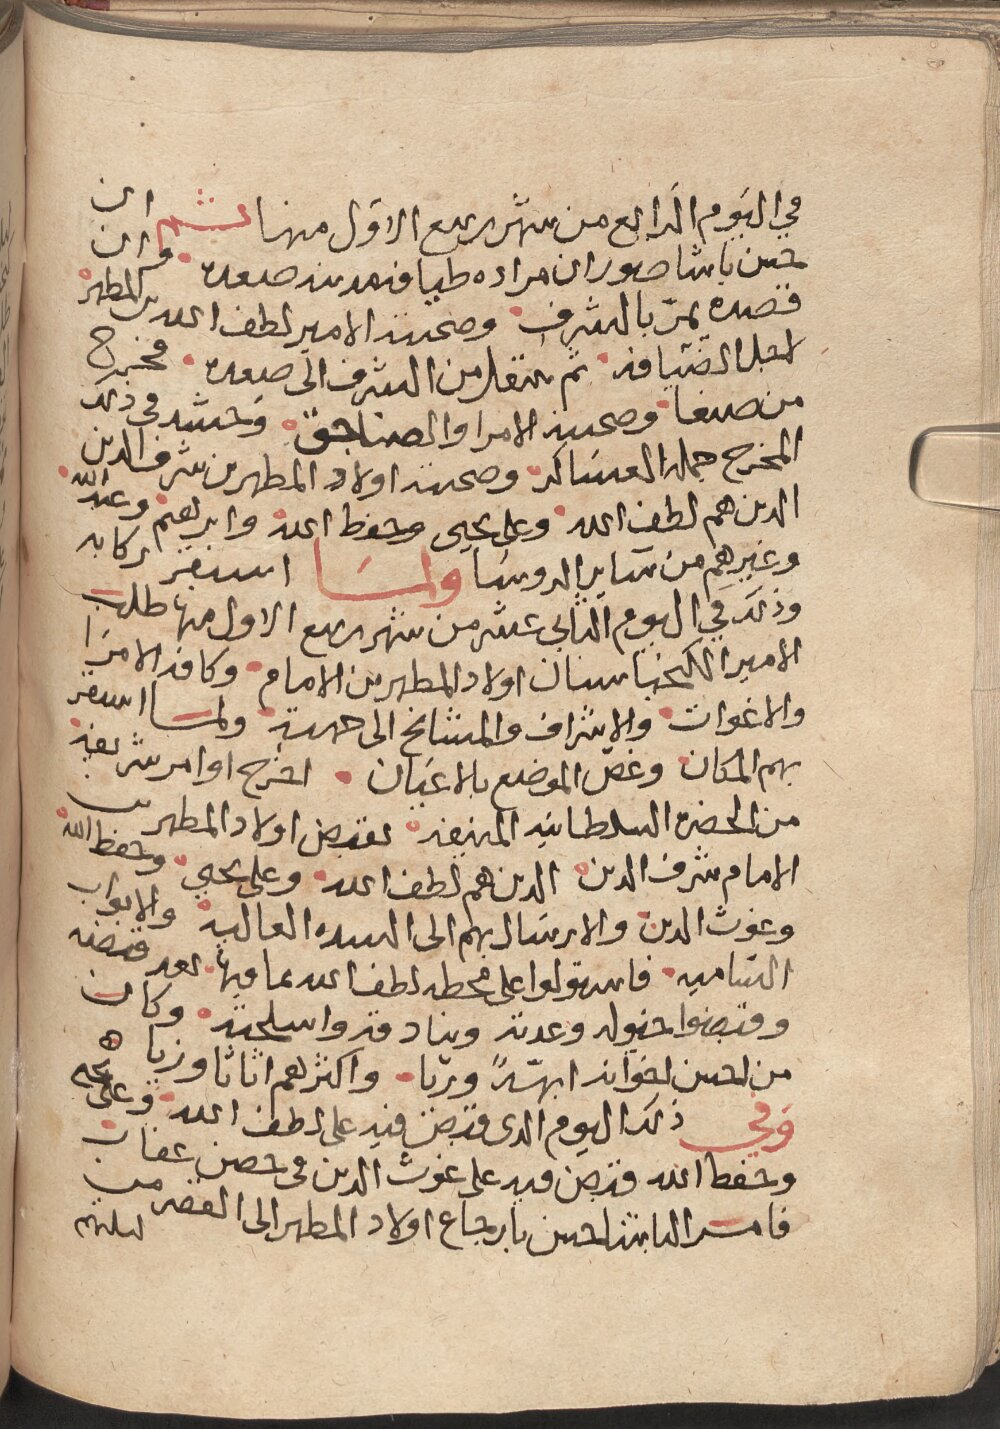 في اليوم الرابع من شهر ربيع الاول منها ثم ان
حسن باشا صور ان مراده طيافة مدينة صعده وان
قصده يمر بالشرف وصحبته الامير لطف الله بن المطهر
لاجل الضيافة ثم ينتقل من الشرف الى صعده فخرج
من صنعا وصحبته الامرا والصناجق وحشد في ذلك
المخرج جملة العساكر وصحبته اولاد المطهر بن شرف الدين
الذين هم لطف الله وعلي يحيى وحفظ الله وابرهيم وعبد الله
وغيرهم من ساير الروسا ولما استقر ركابه
وذلك في اليوم الثاني عشر من شهر ربيع الاول منها طلب
الامير الكيخيا سنان اولاد المطهر بن الامام وكافة الامرا
والاغوات والاشراف والمشائخ الى خيمته ولما استقر
بهم المكان وغص الموضع بالاعيان اخرج اوامر شريفة
من الحضرة السلطانية المنيفة بقبض اولاد المطهر بن
الامام شرف الدين الذين هم لطف الله وعلي يحيى وحفظ الله
وغوث الدين والارسال بهم الى السده العالية والابواب
السامية فاستولوا على محطة لطف الله بما فيها بعد قبضه
وقبضوا خيوله وعدته وبنادقه واسلحته وكان
من احسن اخوانه ابهة وريا واكثرهم اثاثا وزيا
وفي ذلك اليوم الذي قبض فيه على لطف الله وعلي يحيى
وحفظ الله قبض فيه على غوث الدين في حصن عفار
فامر الباشا حسن بارجاع اولاد المطهر الى القصر من
ليلتهم